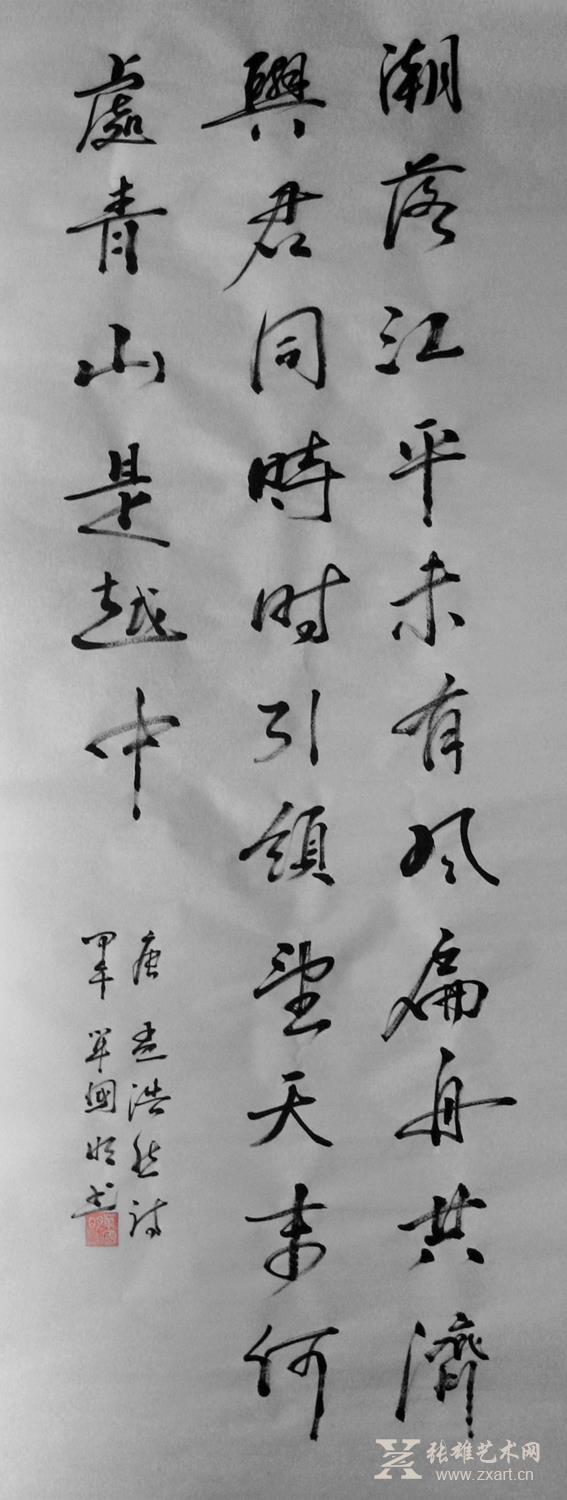 潮落江平未有风扁舟共濟
與君同時时引領望天末何
處青山是越中
唐孟浩然诗
甲午 单國

张雄艺术网
www.zxart.cn